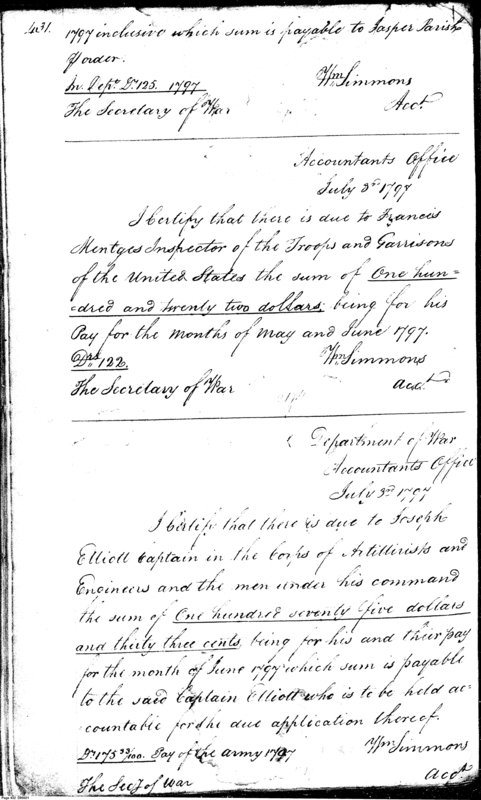 431.
1797 inclusive which sum is payable to Jasper Parish
order.
Drs 125. 1797
Wm Simmons
The Secretary of War
Acct.
Accountants Office
July 3d 1797
I Certify that there is due to Francis
Mentges Inspector of the Troops and Garrisons
of the United States the sum of One hun-
-dred and twenty two dollars; being for his
Pay for the months of May and June 1797.
Drs 122.
Wm Simmons
The Secretary of War
Acct
Department of War
Accountants Office
July 3d 1797
I Certify that there is due to Joseph
Elliott Captain in the Corps of Artillirists and
Engineers and the men under his command
the sum of One hundred seventy five dollars
and thirty three cents, being for his and their pay
for the month of June 1797 which sum is payable
to the said Captain Elliott who is to be held ac-
countable for the due application thereof.
Ds 175 33/100. Pay of the Army 1797
Wm Simmons
The Secy of War
Acct